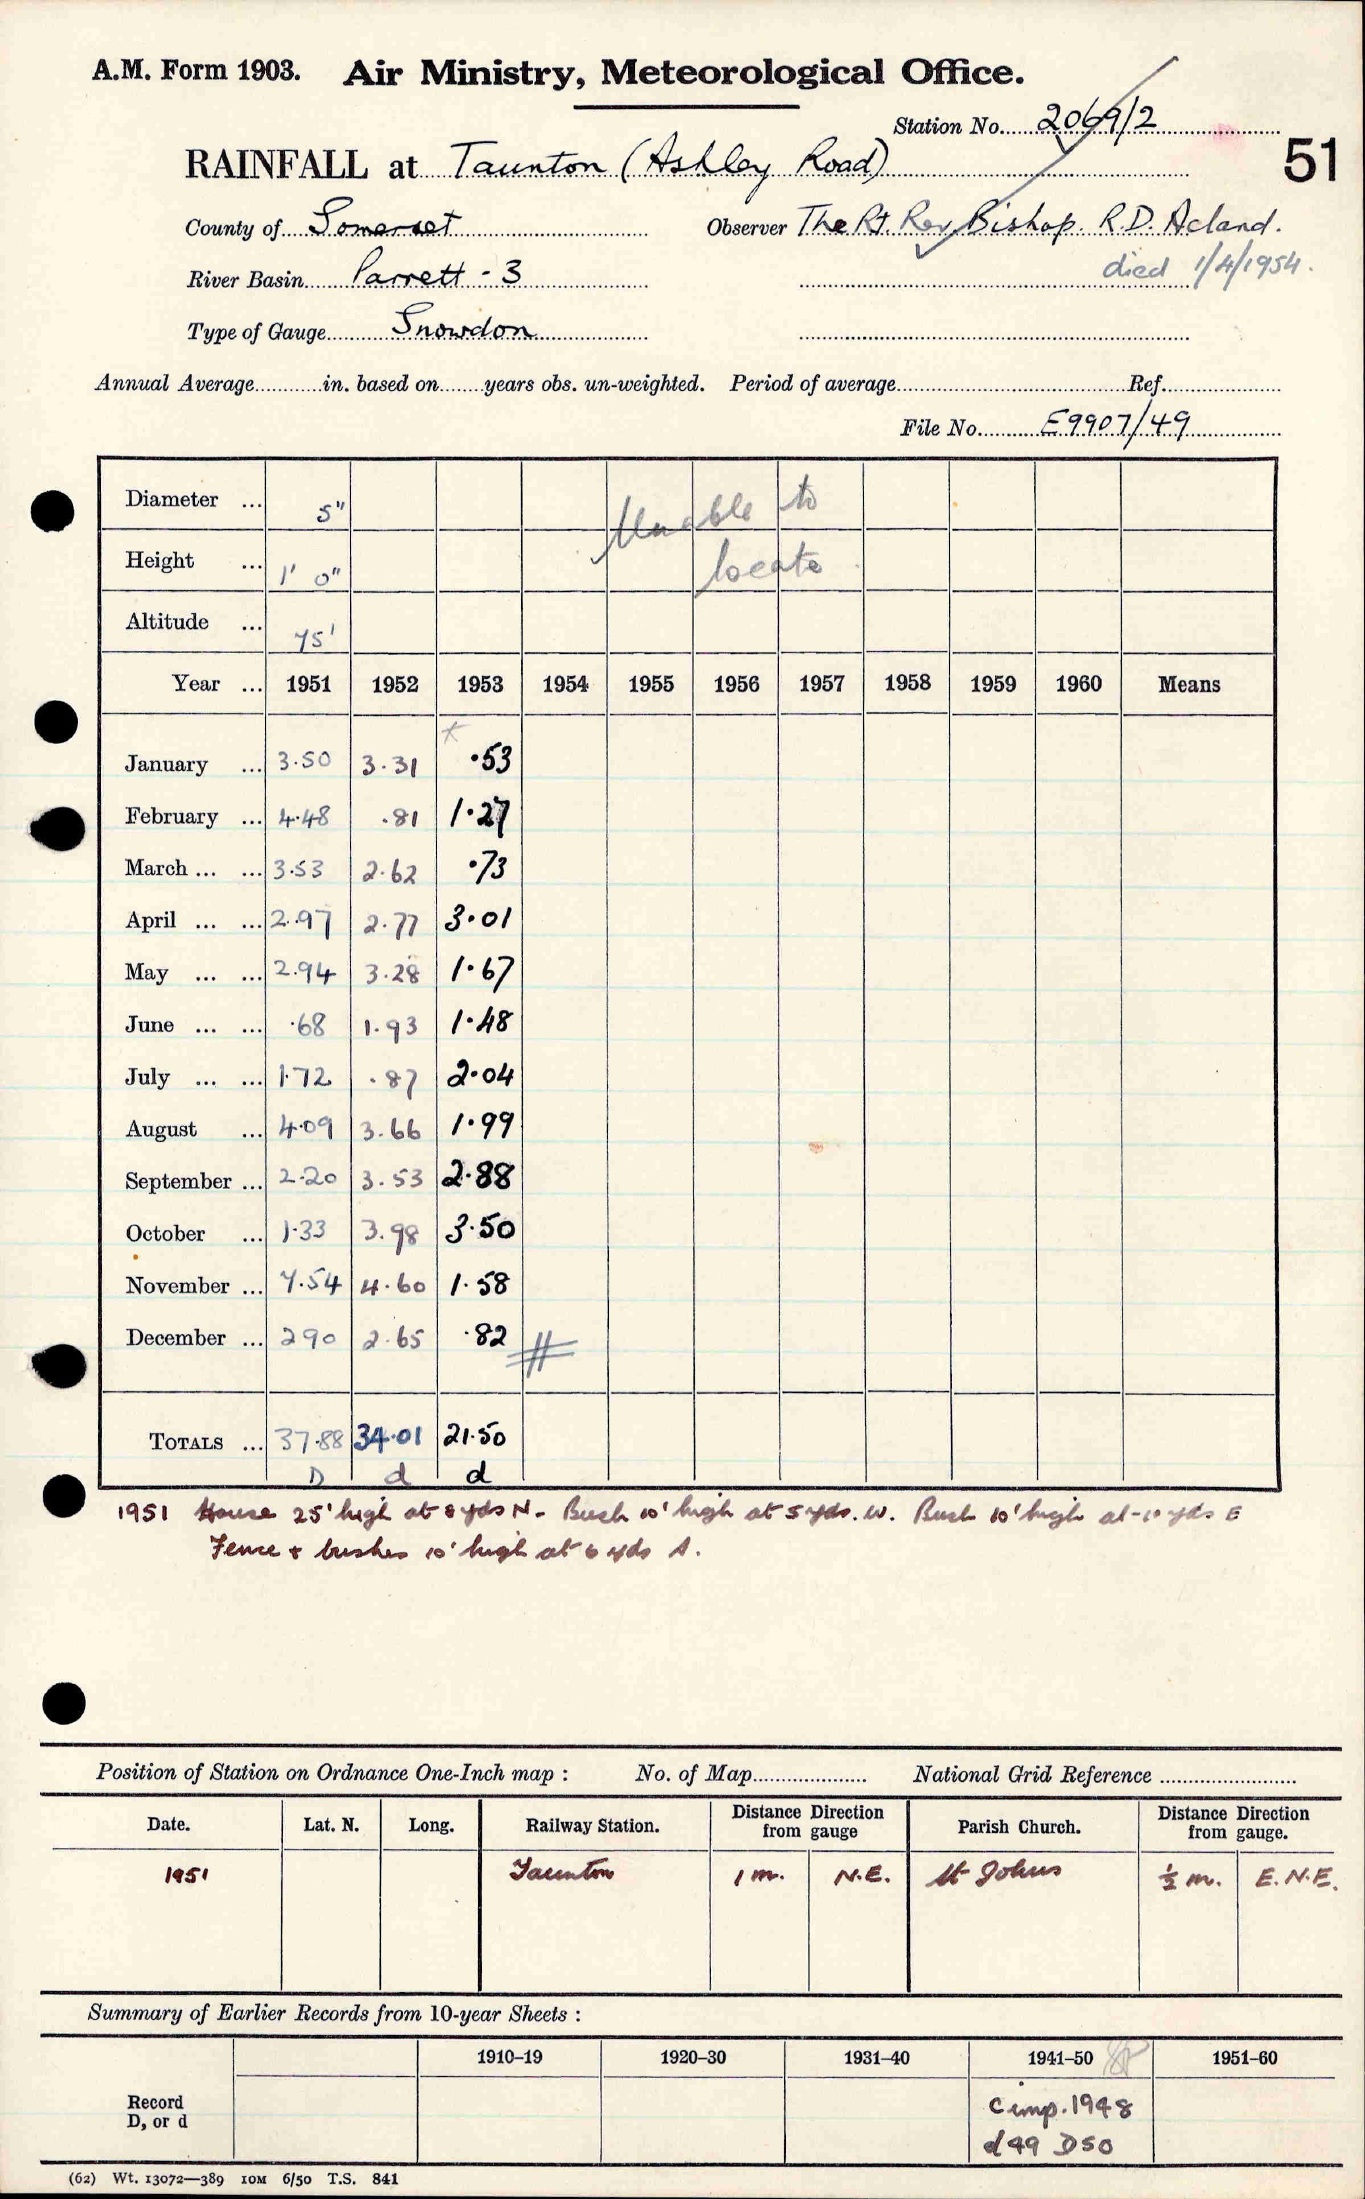 A.M. Form 1903. Air Ministry, Meteorological Office.
Station No. 2069/2
RAINFALL at Taunton (Ashley Road)
51
County of Somerset Observer The Rt. Rev. Bishop. R.D. Acland.
River Basin Parrett - 3 died 1/4/1954.
Type of Gauge Snowdon
Annual Average in. based on years obs. un-weighted. Period of average Ref.
File No. E9907/49
Diameter ... 5"
Unable to
Height ... 1' 0"
locate
Altitude ... 75'
Year ... 1951 1952 1953 1954 1955 1956 1957 1958 1959 1960 Means
January ... 3.50 3.31 .53
February ... 4.48 .81 1.27
March ... ... 3.53 2.62 .73
April ... ... 2.97 2.77 3.01
May ... ... 2.94 3.28 1.67
June ... ... .68 1.93 1.48
July ... ... 1.72 .87 2.04
August ... 4.09 3.66 1.99
September ... 2.20 3.53 2.88
October ... 1.33 3.98 3.50
November ... 7.54 4.60 1.58
December ... 2 90 2.65 .82
TOTALS ... 37.88 34.01 21.50
D d d
1951 House 25' high at 8 yds N. Bush 10' high at 5 yds. W. Bush 10' high at 10 yds E
Fence + bushes 10' high at 6 yds S.
Position of Station on Ordnance One-Inch map : No. of Map National Grid Reference
Date. Lat. N. Long. Railway Station. Distance Direction from gauge Parish Church. Distance Direction from gauge.
1951 Taunton 1 m. N.E. St Johns ½ m. E.N.E.
Summary of Earlier Records from 10-year Sheets :
1910–19 1920–30 1931–40 1941–50 1951–60
Record
D, or d
C imp. 1948
d 49 D 50
(62) Wt. 13072—389 10M 6/50 T.S. 841